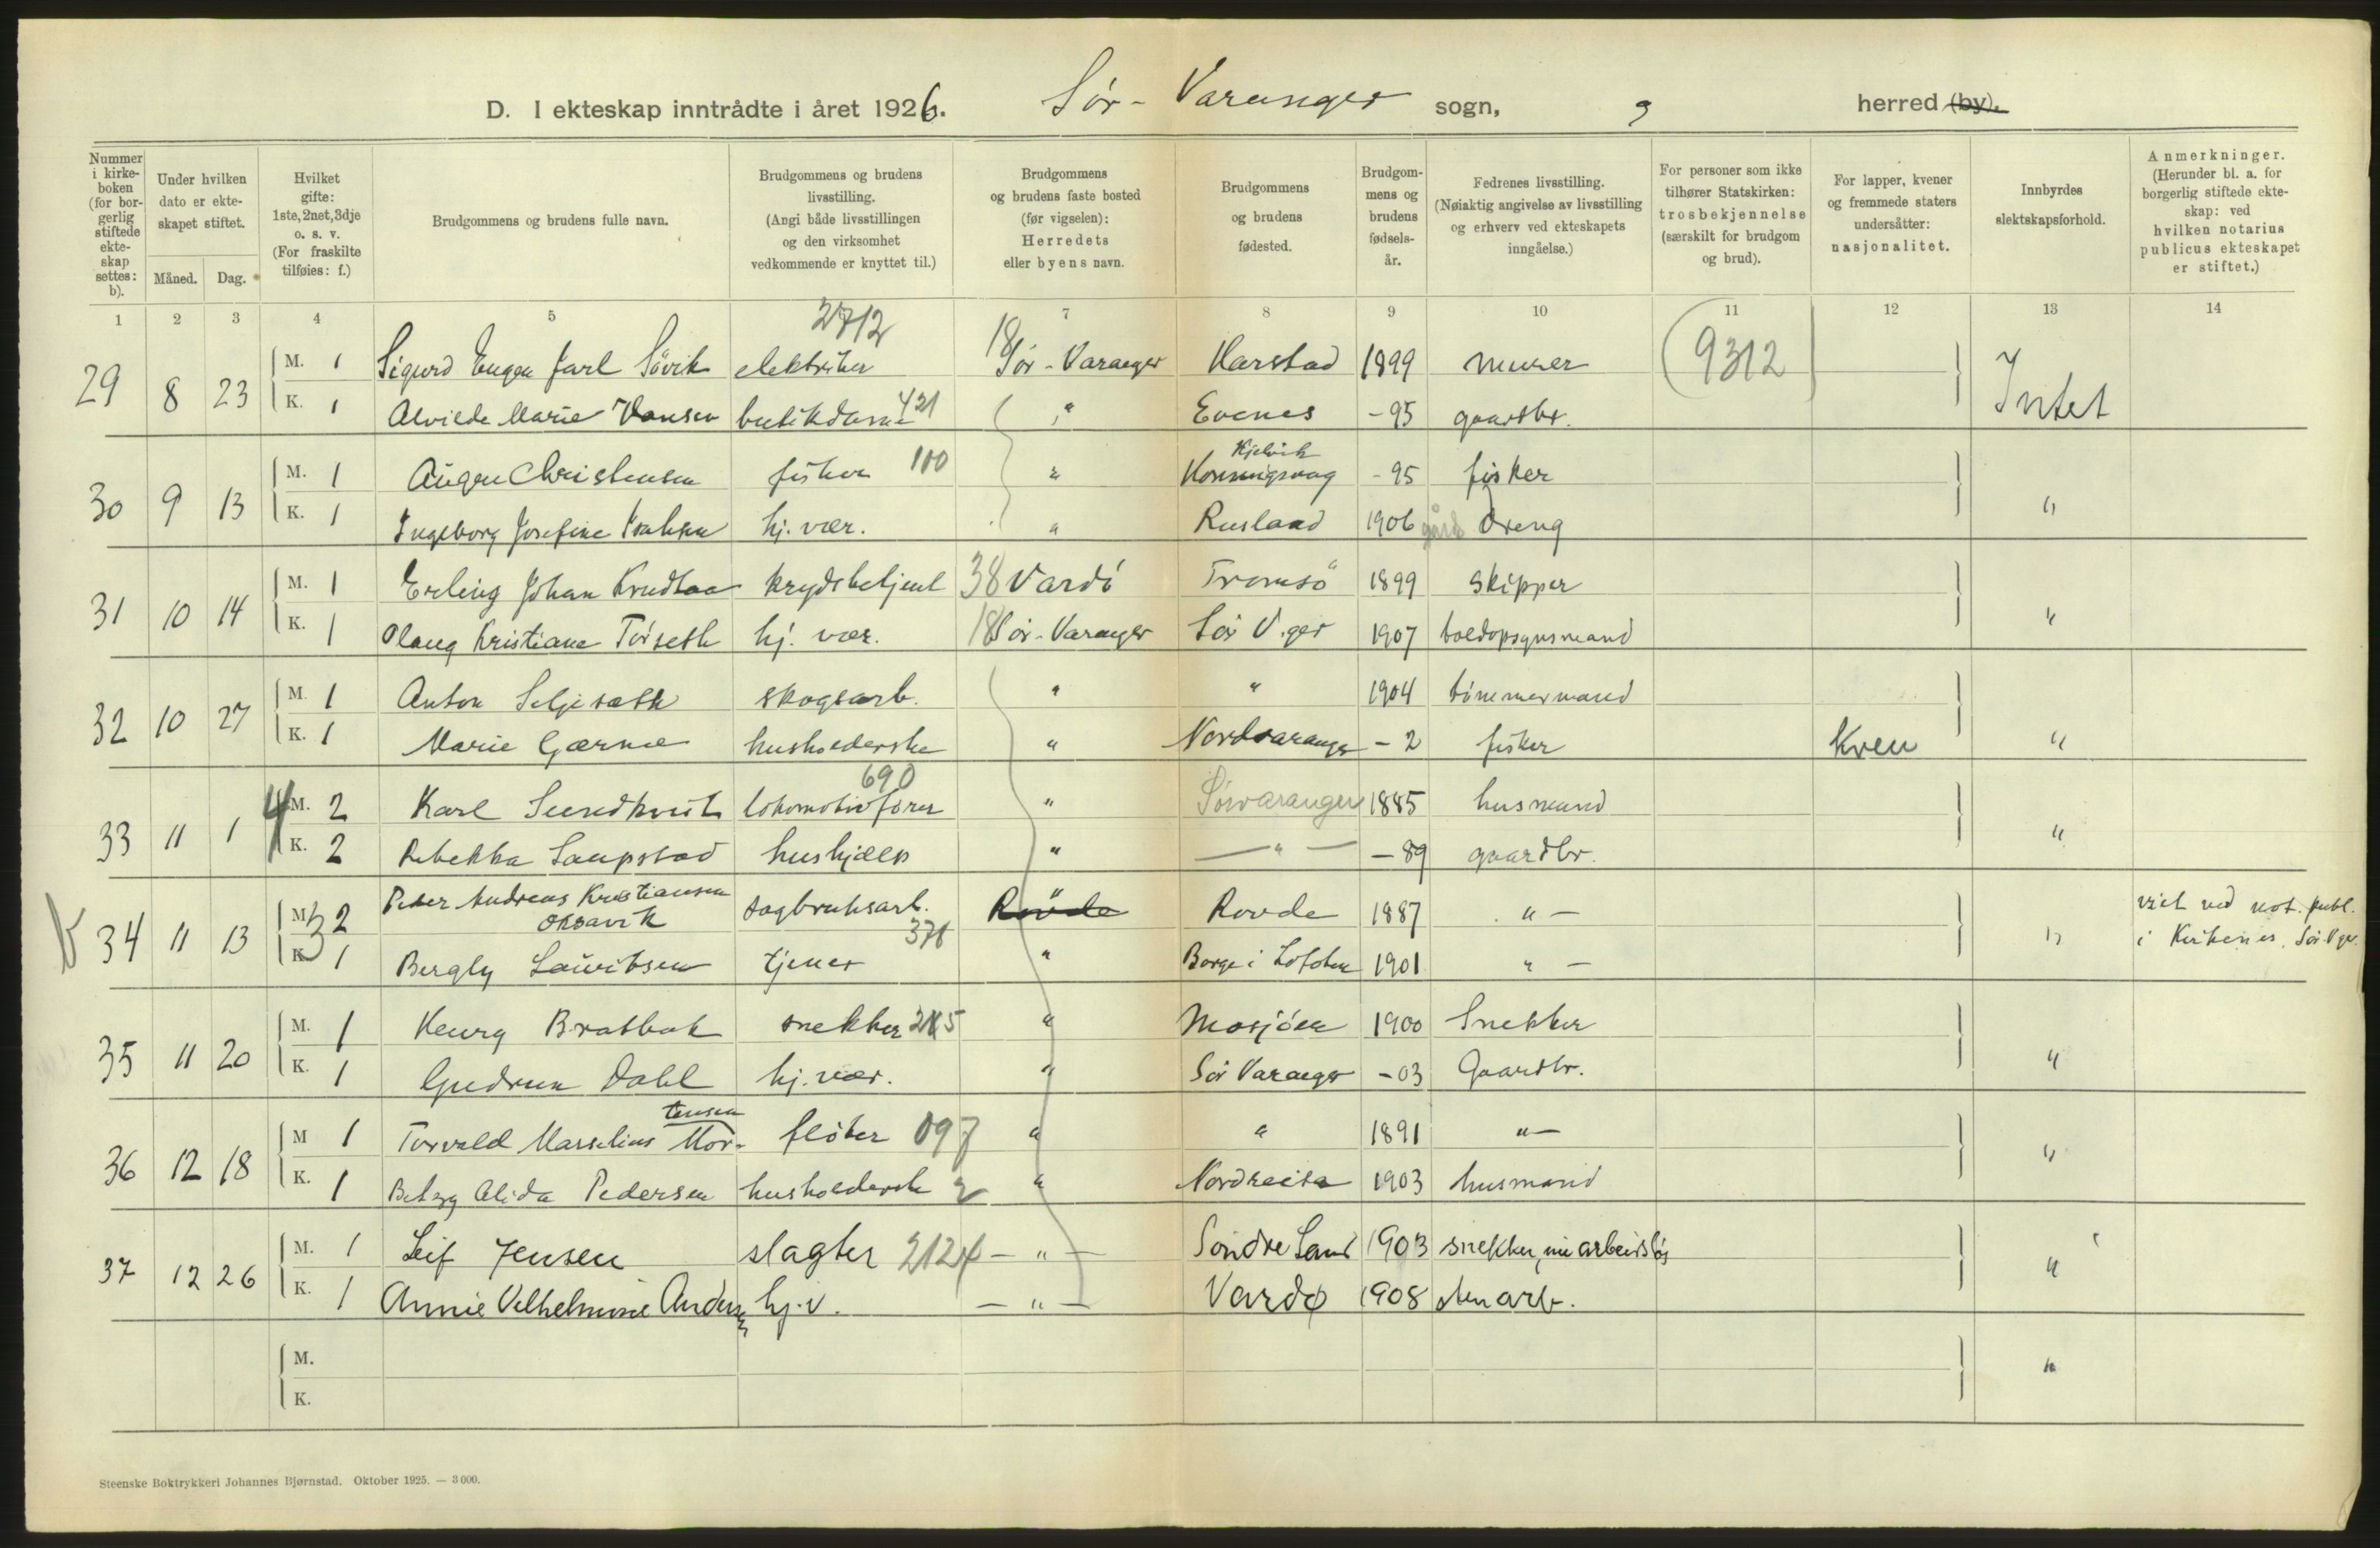 D. I ekteskap inntrådte i året 1926. Sör-Varanger sogn, " herred (by).
Nummer i kirkeboken (for borgerlig stiftede ekteskap settes: b).
Under hvilken dato er ekteskapet stiftet.
Måned. Dag.
Hvilket gifte: 1ste, 2net, 3dje o. s. v. (For fraskilte tilføies: f.)
Brudgommens og brudens fulle navn.
Brudgommens og brudens livsstilling. (Angi både livsstillingen og den virksomhet vedkommende er knyttet til.)
Brudgommens og brudens faste bosted (før vigselen): Herredets eller byens navn.
Brudgommens og brudens fødested.
Brudgommens og brudens fødselsår.
Fedrenes livsstilling. (Nøiaktig angivelse av livsstilling og erhverv ved ekteskapets inngåelse.)
For personer som ikke tilhører Statskirken: trosbekjennelse (særskilt for brudgom og brud).
For lapper, kvener og fremmede staters undersåtter: nasjonalitet.
Innbyrdes slektskapsforhold.
Anmerkninger. (Herunder bl. a. for borgerlig stiftede ekteskap: ved hvilken notarius publicus ekteskapet er stiftet.)
1 2 3 4 5 7 8 9 10 11 12 13 14
2712
29 8 23 M. 1 Sigurd Eugen Jarl Sövik elektriker 18 Sör-Varanger Harstad 1899 murer (9312) Intet
K. 1 Alvilde Marie Hansen butikdame 421 " Evenes -95 gaardbr.
30 9 13 M. 1 Aügen Christensen fisker 100 " Kjelvik Honningsvaag -95 fisker "
K. 1 Ingeborg Josefine hj. vær. " Rusland 1906 gårds dreng
31 10 14 M. 1 Erling Johan Knudtaa krydsbetjent 38 Vardö Tromsö 1899 skipper "
K. 1 Olaug Kristiane Törseth hj. vær. 18 Sör-Varanger Sör V.ger 1907 toldopsynsmand
32 10 27 M. 1 Anton Seljesæth skogsarb. " " 1904 tömmermand
K. 1 Marie Gærnæ husholderske " Nordvaranger -2 fisker Kven "
33 11 1 4 M. 2 Karl Sundkvist lokomotivförer 690 " Sörvaranger 1885 husmand "
K. 2 Rebekka Laupstad hushjælp " — " — -89 gaardbr.
b 34 11 13 M. 2 Peder Andreas Kristiansen Oksavik sagbruksarb. 376 Rövde Rovde 1887 " — " viet ved not. publ. i Kirkenes, Sör V.ger.
K. 1 Bergly Lauritsen tjener " Borge i Lofoten 1901 " —
35 11 20 M. 1 Henry Bratbak snekker 215 " Mosjöen 1900 Snekker "
K. 1 Gudrun Dahl hj. vær. " Sör Varanger -03 Gaardbr.
36 12 18 M 1 Torvald Marselius Mortensen flöter 097 " " 1891 " — "
K. 1 Betzy Alida Pedersen husholderske 2 " Nordreisa 1903 husmand
37 12 26 M. 1 Leif Jensen slagter 2124 — " — Söndre Land 1903 snekker, nu arbeidslös "
K. 1 Annie Vilhelmine Andersen hj.v. — " — Vardø 1908 stenarb.
M. "
K.
Steenske Boktrykkeri Johannes Bjørnstad. Oktober 1925. — 3 000.